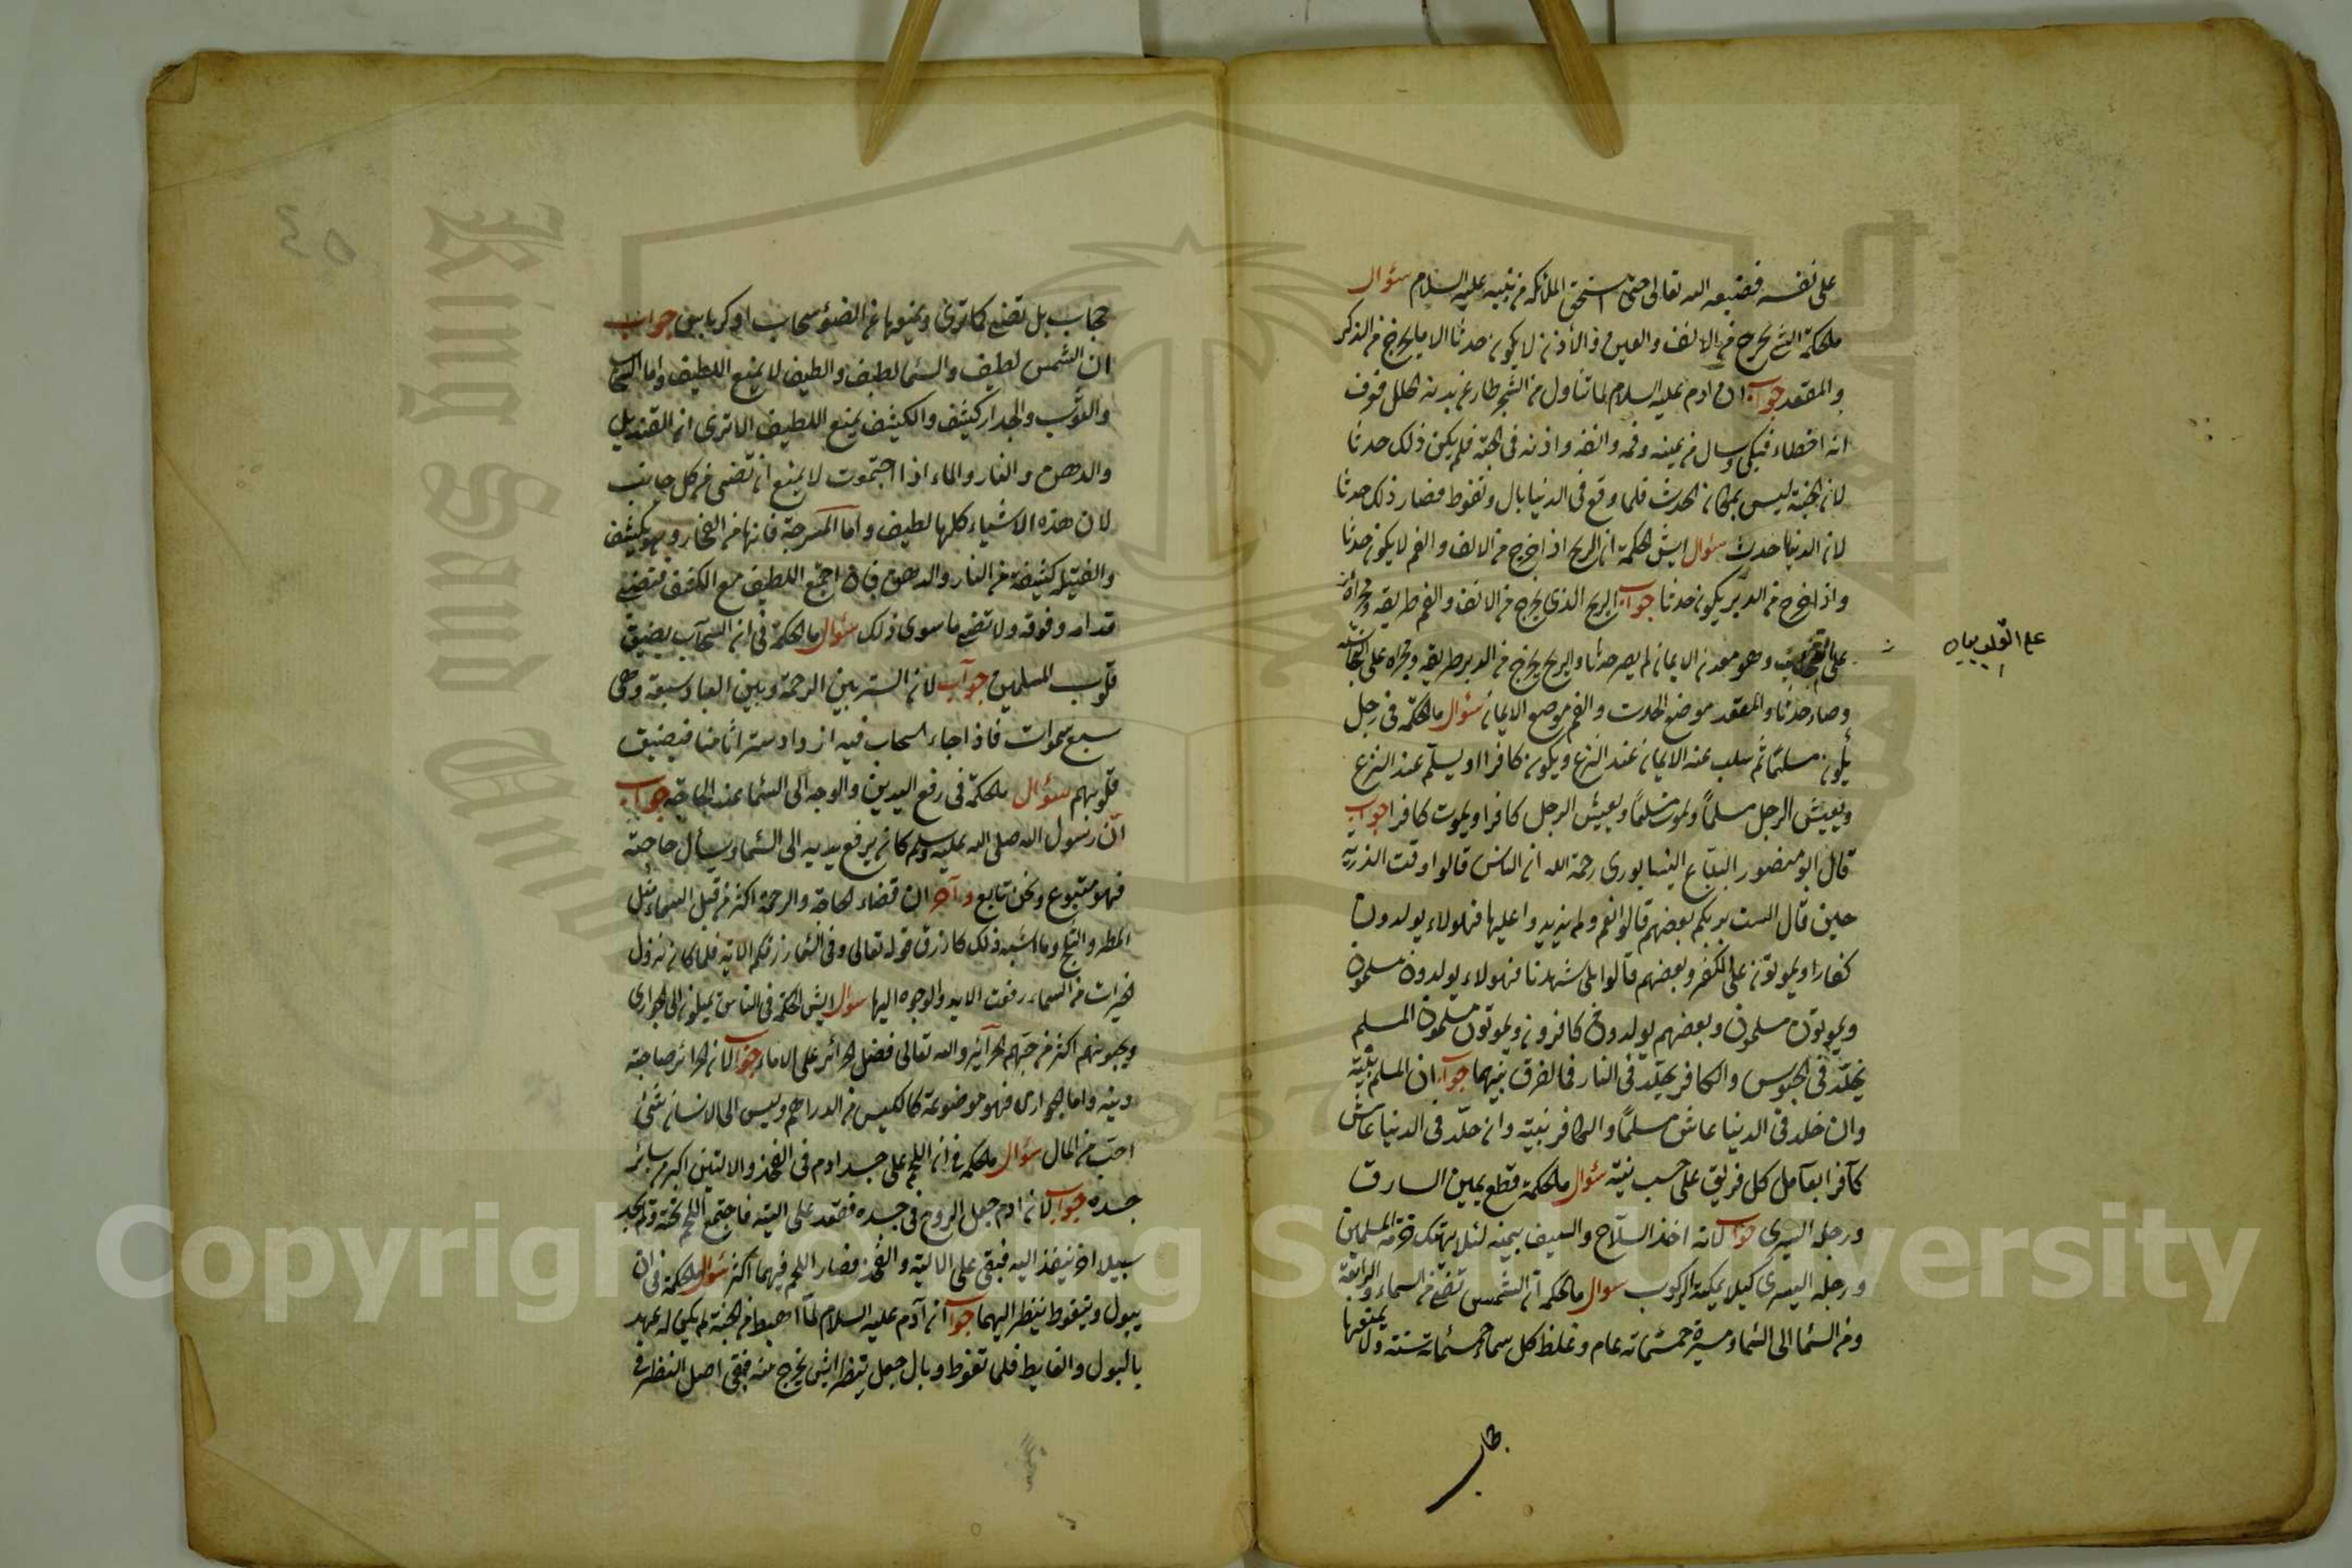 على نفسه فضيعه الله تعالى حتى استحق الملائكه من بنيه عليه السلام سؤال
ما الحكمة التى يخرج من الانف والعين والأذن لا يكون حدثا الا ما يخرج من الذكر
والمقعد جواب ان ادم عليه السلام لما تناول من الشجر طار عن بدنه الحلل فعرف
انه اخطاء فبكى وسال من عينه وفمه وانفه واذنه فى الجنة فلم يكن ذلك حدثا
لان الجنة ليس بمكان الحدث فلما وقع فى الدنيا بال وتغوط فصار ذلك حدثا
لان الدنيا حدث سؤال ايش الحكمة ان الريح اذا خرج من الانف والفم لا يكون حدثا
واذا خرج من الدبر يكون حدثا جواب الريح الذى يخرج من الانف والفم طريقه ومجراه
على القلب وهو معدن الايمان لم يصر حدثا والريح يخرج من الدبر طريقه ومجراه على النجاسة
وصار حدثا والمقعد موضع الحدث والفم موضع الايمان سؤال ما الحكمة فى رجل
يكون مسلمًا ثم سلب عنه الايمان عند النزع ويكون كافرا او يسلم عند النزع
ويعيش الرجل مسلمًا ويموت مسلمًا ويعيش الرجل كافرا ويموت كافرا جواب
قال ابو منصور البياع النيسابورى رحمة الله ان الناس قالوا وقت الذرية
حين قال الست بربكم بعضهم قالوا نعم ولم يزيدوا عليها فهولاء يولدون
كفارا ويموتون على الكفر وبعضهم قالوا بلى شهدنا فهولاء يولدون مسلمون
ويموتون مسلمون وبعضهم يولدون كافرون ويموتون مسلمون المسلم
يخلد فى والكافر يخلد فى النار فما الفرق بينهما جواب ان المسلم بنيّته
وان خلد فى الدنيا عاش مسلمًا والكافر بنيته وان خلد فى الدنيا عاش
كافرا يعامل كل فريق على حسب نيته سؤال ما الحكمة قطع يمين السارق
ورجله اليسرى جواب لانه اخذ السلاح والسيف بيمينه لئلا يهتك حرمة المسلمين
ورجله اليسرى كيلا يمكنه الركوب سؤال ما الحكمة ان الشمس تضئ من السماء الرابعة
ومن السما الى السما مسيرة خمسمائة عام وغلظ كل سماء خمسمائة سنة ولا يمنعها
على القلب
حجاب بل تضئ كما ترى ويمنعها عن الضوء سحاب او كرباس جواب
ان الشمس لطيف والسما لطيف والطيف لا يمنع اللطيف واما السحاب
والثوب والجدار كثيف والكثيف يمنع اللطيف الا ترى ان القنديل
والدهن والنار والماء اذا اجتمعوت لا يمنع ان تضئ من كل جانب
لان هذه الاشياء كلها لطيف واما المسرجة فانها من الفخار وهو كثيف
والفتيلة كثيفة من النار والدهن فان اجتمع اللطيف مع الكثيف فتضئ
قدامه وفوقه ولا تضئ ما سوى ذلك سؤال ما الحكمة فى ان السحاب يضيق
قلوب المسلمين جواب لان الستر بين الرحمة وبين العباد سبعة وهى
سبع سموات فاذا جاء السحاب فيه ازداد ستراثامنا فيضيق
قلوبهم سؤال ما الحكمة فى رفع اليدين والوجه الى السما عند الحاجة جواب
انّ رسول الله صلى الله عليه وسلم كان يرفع يديه الى السما ويسأل حاجته
فهو متبوع ونحن تابع وآخر ان قضاء الحاجة والرحمة اكثر من قبل السماء مثل
المطر والثلج وما اشبه ذلك كارزق قوله تعالى وفى السما رزقكم الاية فلما كان نزول
الخيرات من السماء رفعت الايد والوجوه اليها سؤال ايش الحكمة فى الناس يميلون الى الجوارى
ويحبونهم اكثر من حبهم الحرآئر والله تعالى فضل الحرائر على الاماء جواب لان الحرائر صاحبة
دينه واما الجوارى فهو موضوعة كالكيس من الدراهم وليس الى الانسان شئ
احب من المال سؤال ما الحكمة فى ان اللحم على جسد ادم فى الفخذ والاليتين اكبر من سائر
جسده جواب لان ادم جعل الروح فى جسده فقعد على اليته فاجتمع اللحم تحته ولم يجد
سبيلا اخر ينفذ اليه فبقى على الالية والفخذ فصار اللحم فيهما اكثر سؤال ما الحكمة فى ان
يبول ويتغوط ينظر اليهما جواب ان آدم عليه السلام لما اهبط من الجنة لم يكن له عهد
بالبول والغايط فلما تغوط وبال جعل ينظر ايش يخرج منه فبقى اصل النظر فى
Copyright © King Saud University
King Saud University
1957